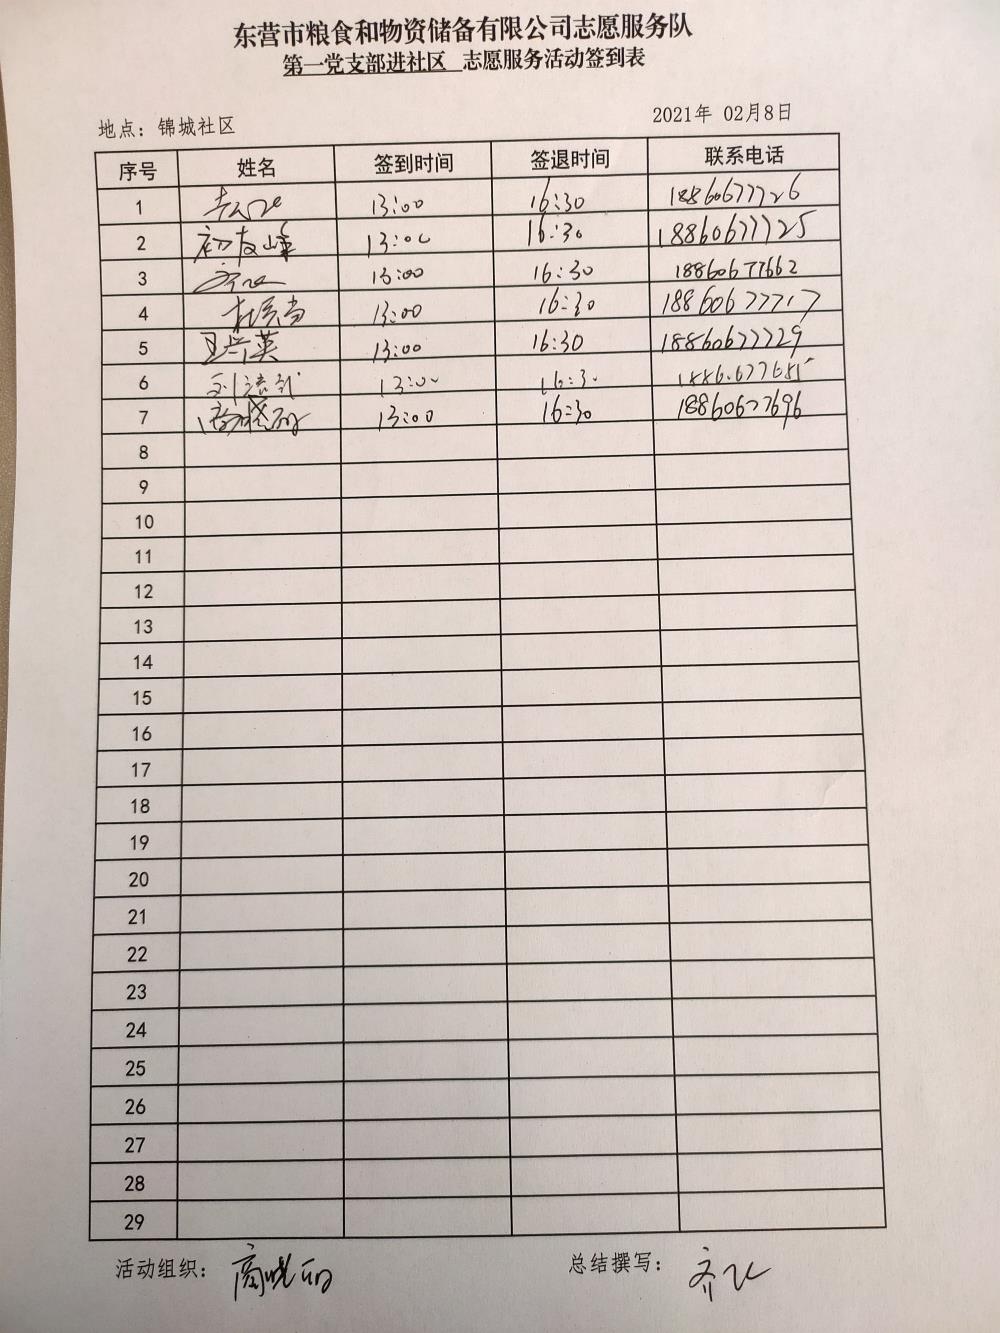 东营市粮食和物资储备有限公司志愿服务队
第一党支部进社区 志愿服务活动签到表
地点：锦城社区 2021年 02月8日
序号 姓名 签到时间 签退时间 联系电话
1 13:00 16:30 18860677726
2 初友峰 13:00 16:30 18860677725
3 13:00 16:30 18860677662
4 13:00 16:30 18860677717
5 13:00 16:30 18860677729
6 13:00 16:30
7 商晓丽 13:00 16:30 18860677696
8
9
10
11
12
13
14
15
16
17
18
19
20
21
22
23
24
25
26
27
28
29
活动组织：商晓丽 总结撰写：